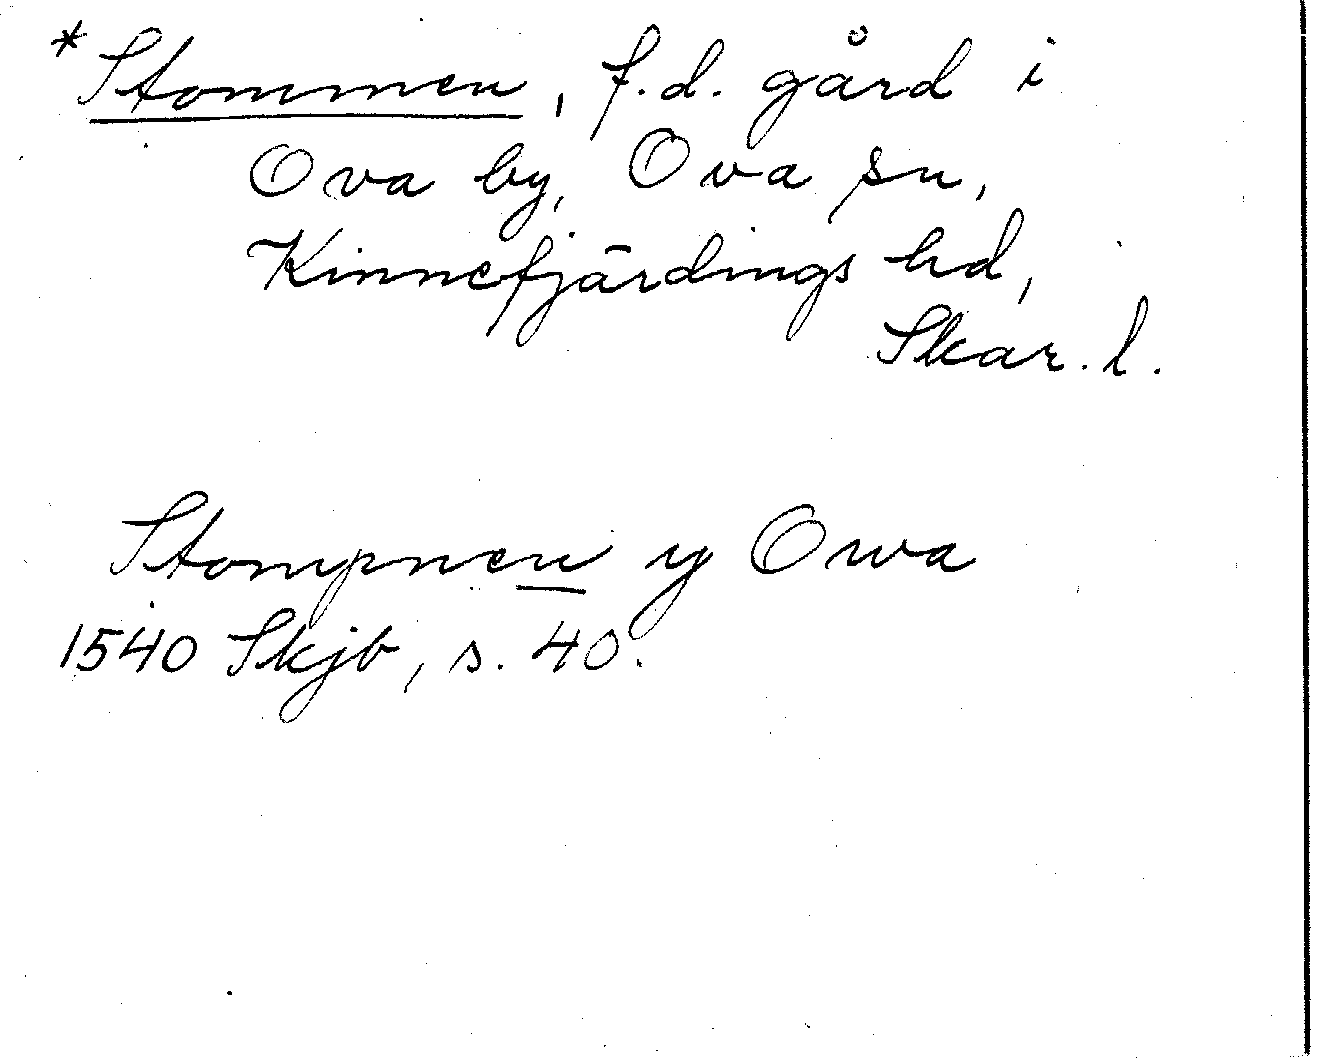 *Stommen, f.d. gård i
Ova by, Ova sn,
Kinnefjärdings hd,
Skar. l.
Stompnen y Owa
1540 Skjb, s. 40.